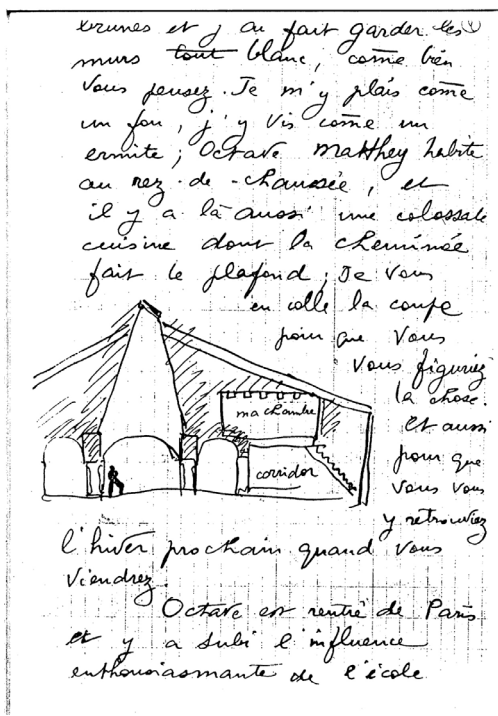 brunes et j'ai fait garder les 4
murs tout blanc, come bien
vous pensez. Je m'y plais come
un fou, j'y vis come un
ermite; Octave Matthey habite
au rez-de-chaussée, et
il y a là aussi une colossale
cuisine dont la cheminée
fait le plafond; Je vous
en colle la coupe
pour que vous
vous figuriez
la chose.
Et aussi
pour que
vous vous
y retrouviez
ma chambre
corridor
l'hiver prochain quand vous
viendrez.
Octave est rentré de Paris
et y a subi l'influence
enthousiasmante de l'école